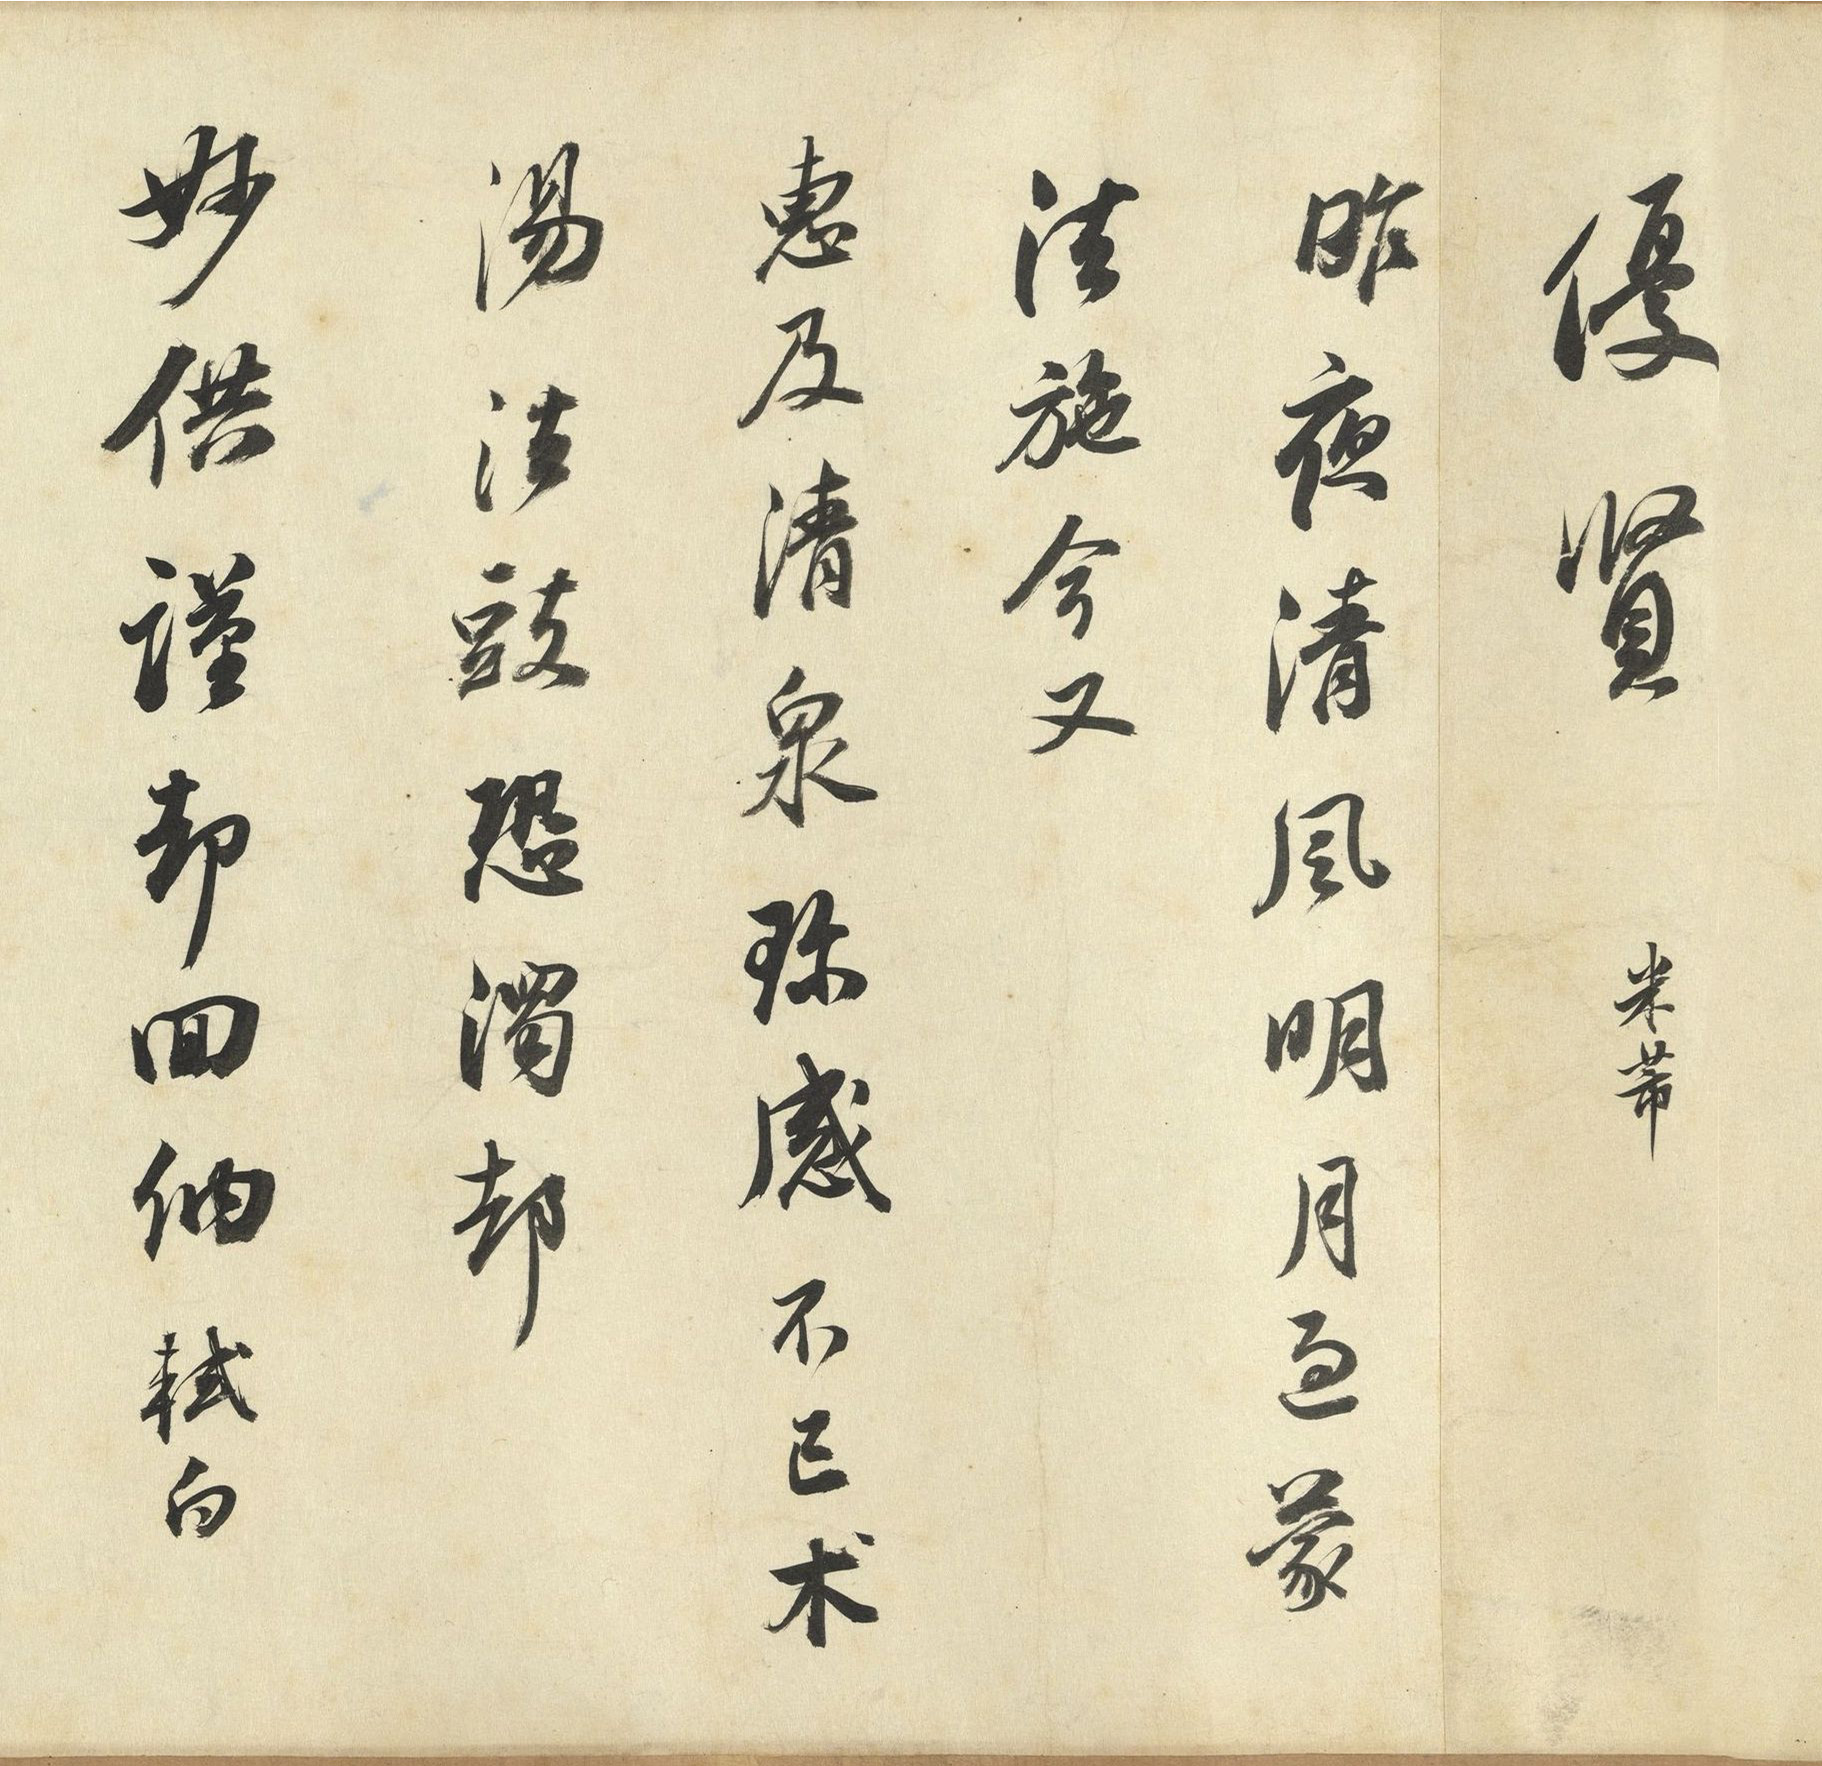 優賢 米芾
昨夜清風明月過蒙
法施今又
惠及清泉珎感不已术
湯法豉恐濁却
妙供謹却回納軾白